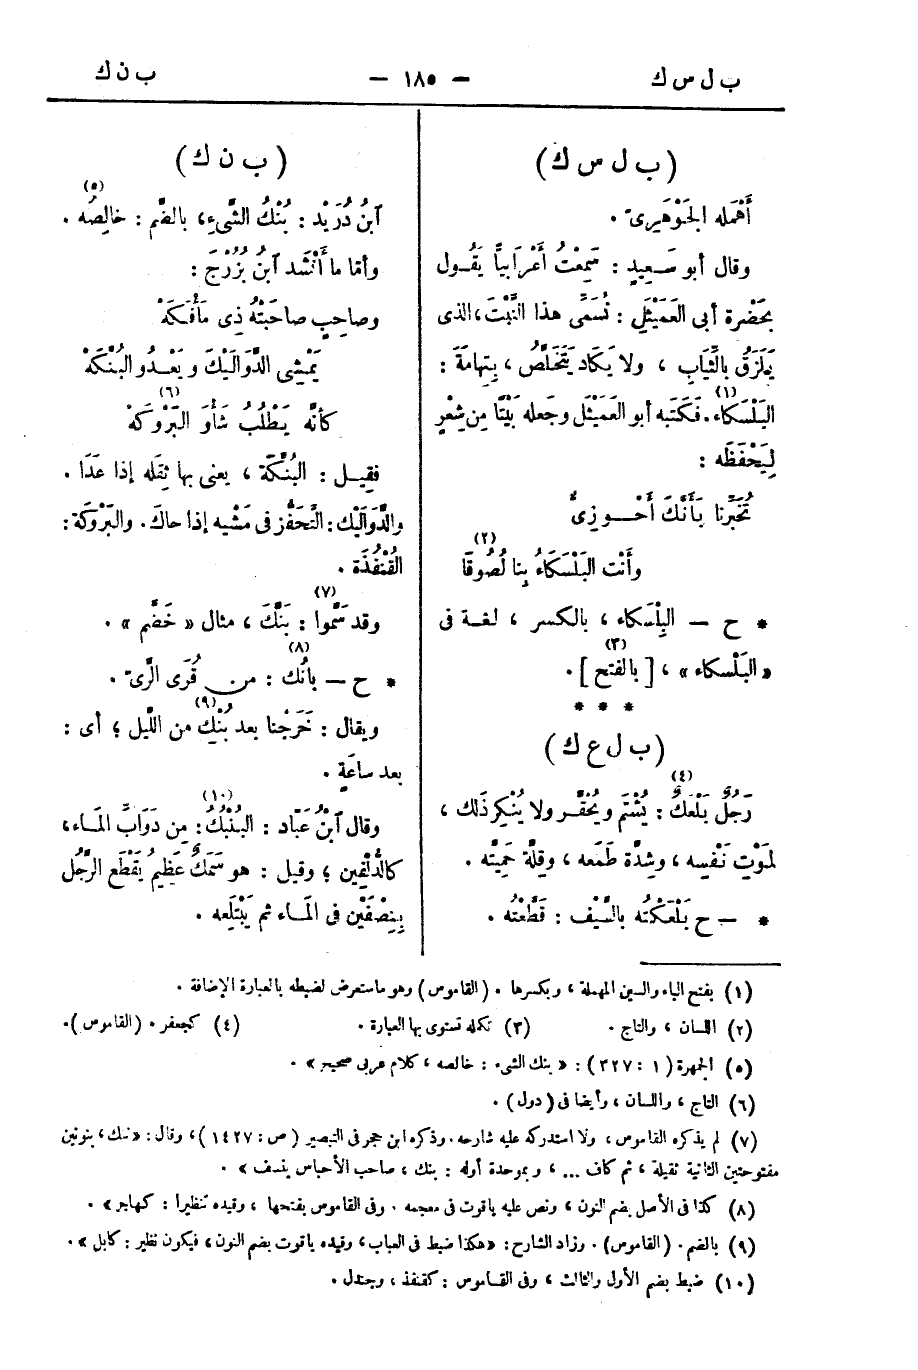 ب ل س ك — ١٨٥ — ب ن ك
( ب ل س ك )
أَهْمَله الجَوْهَرِىّ .
وقال أبو سَعِيدٍ : سَمِعْتُ أَعْرَابِياًّ يَقُول
بحَضْرة أبى العَمَيْثَلِ : نُسَمِّى هذا النَّبْتَ ، الذى
يَلزَقُ بالثِّيَابِ ، ولا يَكَاد يَتَخَلَّص ، بتِهامَةَ :
البَلْسكَاء(١). فكتَبه أبو العَمَيْثَل وجَعله بَيْتًا مِن شِعْرٍ
لِيَحْفَظَه :
تُخَبِّرنا بأَنَّكَ أَحْــوزِىٌّ
وأَنْت البَلْسكَاءُ(٢) بِنا لُصُوقَا
* ح — البِلْسَكاء ، بالكسر ، لغة فى
« البَلْسكاء » ، [ بالفتح(٣) ] .
* * *
( ب ل ع ك )
رَجُلٌ بَلْعَكٌ(٤) : يُشْتَم ويُحَقَّر ولا يُنْكِر ذَلك ،
لمَوْتِ نَفْسِه ، وشِدَّة طَمَعه ، وقِلَّة حَمِيَّتِه .
* — ح بَلْعَكْتُه بالسَّيْف : قَطَّعْتُه .
( ب ن ك )
ٱبنُ دُرَيْد : بُنْكُ الشَّىءِ ، بالضَّم : خالِصُه(٥) .
وأمّا ما أَنْشَد ٱبنُ بُزُرْجَ :
وصاحِبٍ صاحَبْتُهُ ذِى مَأْفَكَهْ
يَمْشِى الدَّوَالَيْكَ ويَعْـدُو البُنَّكَهْ
كأنَّه يَطْلُبُ(٦) شَأْوَ البَرْوَكَهْ
فقِيـل : البُنَّكَة ، يعنى بها ثِقَله إذا عَدَا .
والدَّوَالَيْك : التَّحَفُّز فى مَشْيه إذا حاكَ . والبَرْوَكَة :
القُنْفُذَة .
وقد سَمَّوا : بَنَّكَ(٧) ، مثال « خَضَّم » .
* ح — بانُك(٨) : من قُرَى الرَّىّ .
ويقال : خَرَجْنا بعد بُنْكٍ(٩) من اللَّيل ؛ أى :
بعد ساعَةٍ .
وقال ٱبنُ عَبَّاد : البُنْبُكُ(١٠) : مِن دَوَابِّ المَـاء ،
كالدُّلْفِين ؛ وقيل : هو سَمَكٌ عَظِيمٌ يَقْطَع الرَّجُل
بِنِصْفَيْن فى المَـاء ثم يَبْتَلِعه .
(١) بفتح الباء والسين المهملة ، وبكسرها . (القاموس) وهو ما ستعرض لضبطه بالعبارة الإضافة .
(٢) اللسان ، والتاج . (٣) تكملة تستوى بها العبارة . (٤) كجعفر . (القاموس).
(٥) الجمهرة ( ١ : ٣٢٧ ) : « بنك الشىء : خالصه ، كلام عربى صحيح » .
(٦) التاج ، واللسان ، وأيضا فى (دول) .
(٧) لم يذكره القاموس ، ولا استدركه عليه شارحه . وذكره ابن حجر فى التبصير ( ص : ١٤٢٧ ) ، وقال : « ننك ، بنونين
مفتوحتين الثانية ثقيلة ، ثم كاف ... ، وبموحدة أوله : بنك ، صاحب الأحباس بنسف » .
(٨) كذا فى الأصل بضم النون ، ونص عليه ياقوت فى معجمه . وفى القاموس بفتحها ، وقيده تنظيرا : كهاجر » .
(٩) بالضم . (القاموس) . وزاد الشارح : «هكذا ضبط فى العباب ، وقيده ياقوت بضم النون ، فيكون نظير : كابل » .
(١٠) ضبط بضم الأول والثالث ، وفى القاموس : كقنفذ ، وجندل .